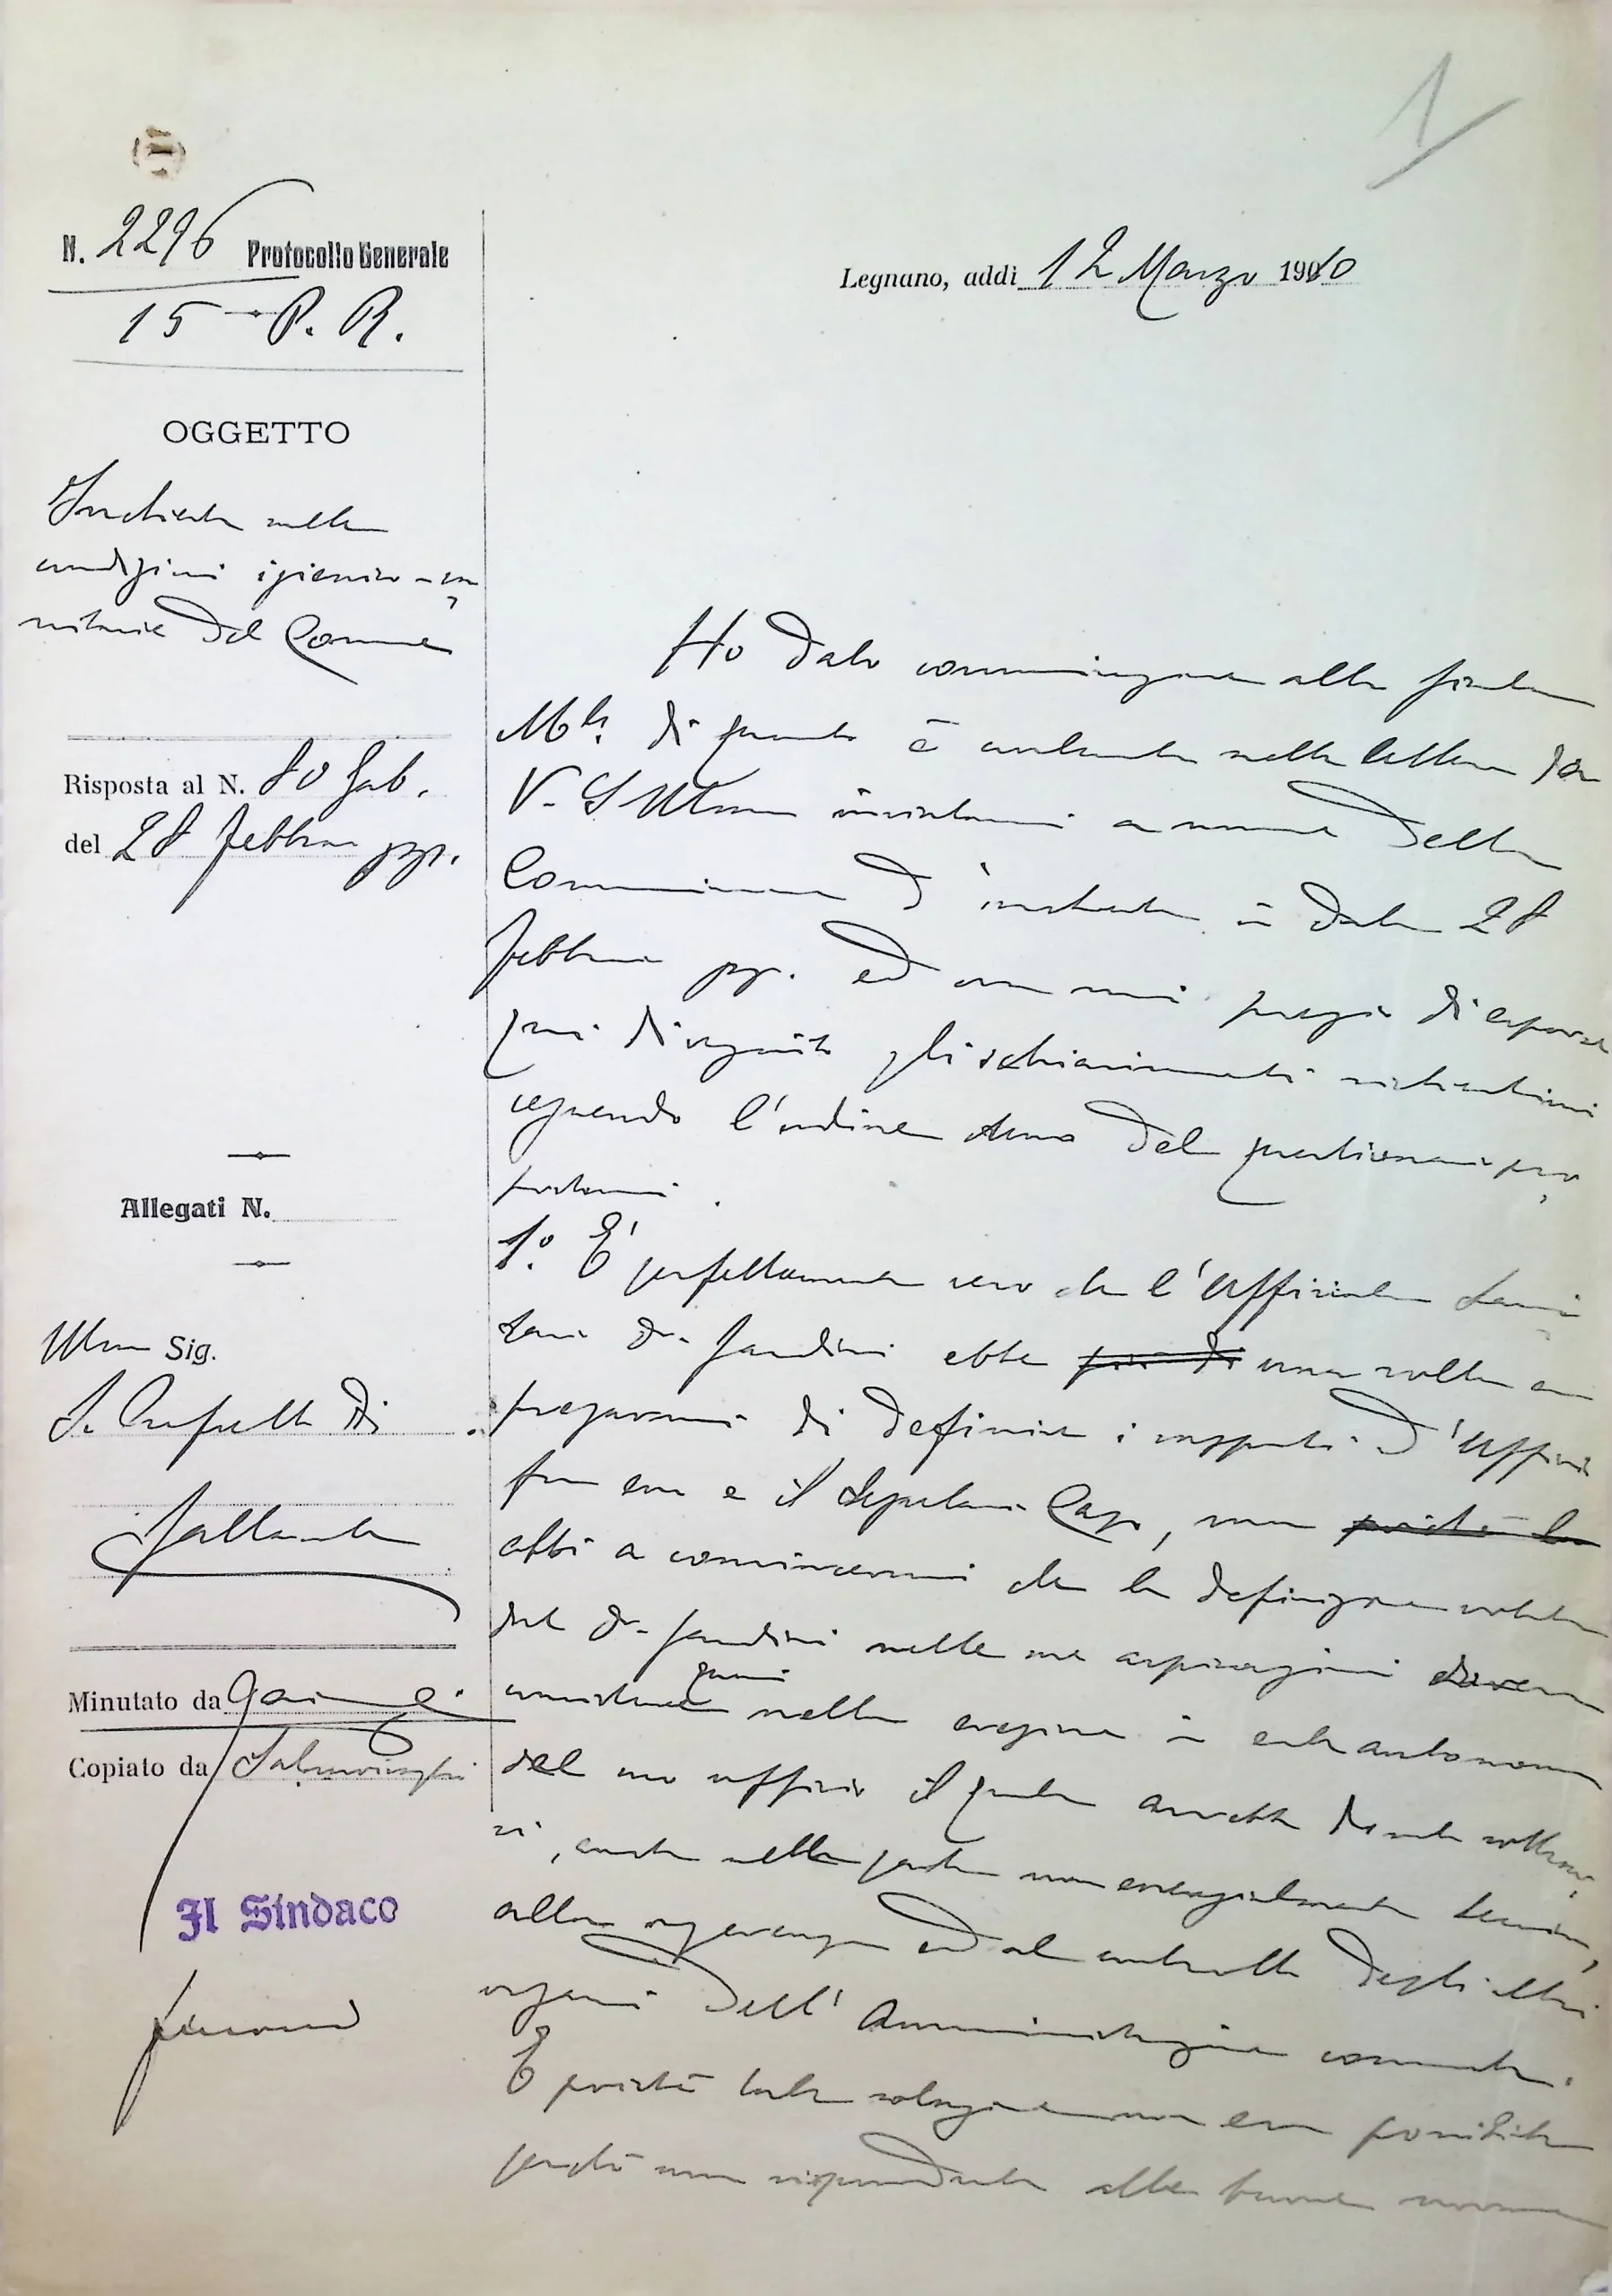 1
N. 2296 Protocollo Generale
15 - P. R.
OGGETTO
Inchiesta sulle
condizioni igienico-sa
nitarie del Comune
Risposta al N. 80 Gab.
del 28 febbraio pp.
Allegati N.
Illmo Sig.
di
Gallarate
Minutato da
Copiato da
Il Sindaco
Legnano, addì 12 Marzo 1910
Ho dato comunicazione alla Giunta
Mle. di quanto è contenuto nella lettera da
V. S. Illma inviatami a nome della
Commissione d'inchiesta in data 28
febbraio pp. ed ora mi pregio di esporre
qui di seguito gli schiarimenti richiestimi
seguendo l'ordine stesso del questionario pro
postomi.
1º. E' perfettamente vero che l'Ufficiale Sani
tario dr. ebbe più di una volta a
pregarmi di definire i rapporti d'Ufficio
fra esso e il Segretario Capo, ma poichè la
ebbi a convincermi che la definizione voluta
dal dr. nelle sue aspirazioni doveva
consistere quasi nella erezione in ente autonomo
del suo ufficio il quale avrebbe dovuto sottrar
si, anche nella parte non essenzialmente tecnica,
alla ingerenza ed al controllo degli altri
organi dell'Amministrazione comunale.
E poichè tale soluzione non era possibile
perchè non rispondente alle buone norme